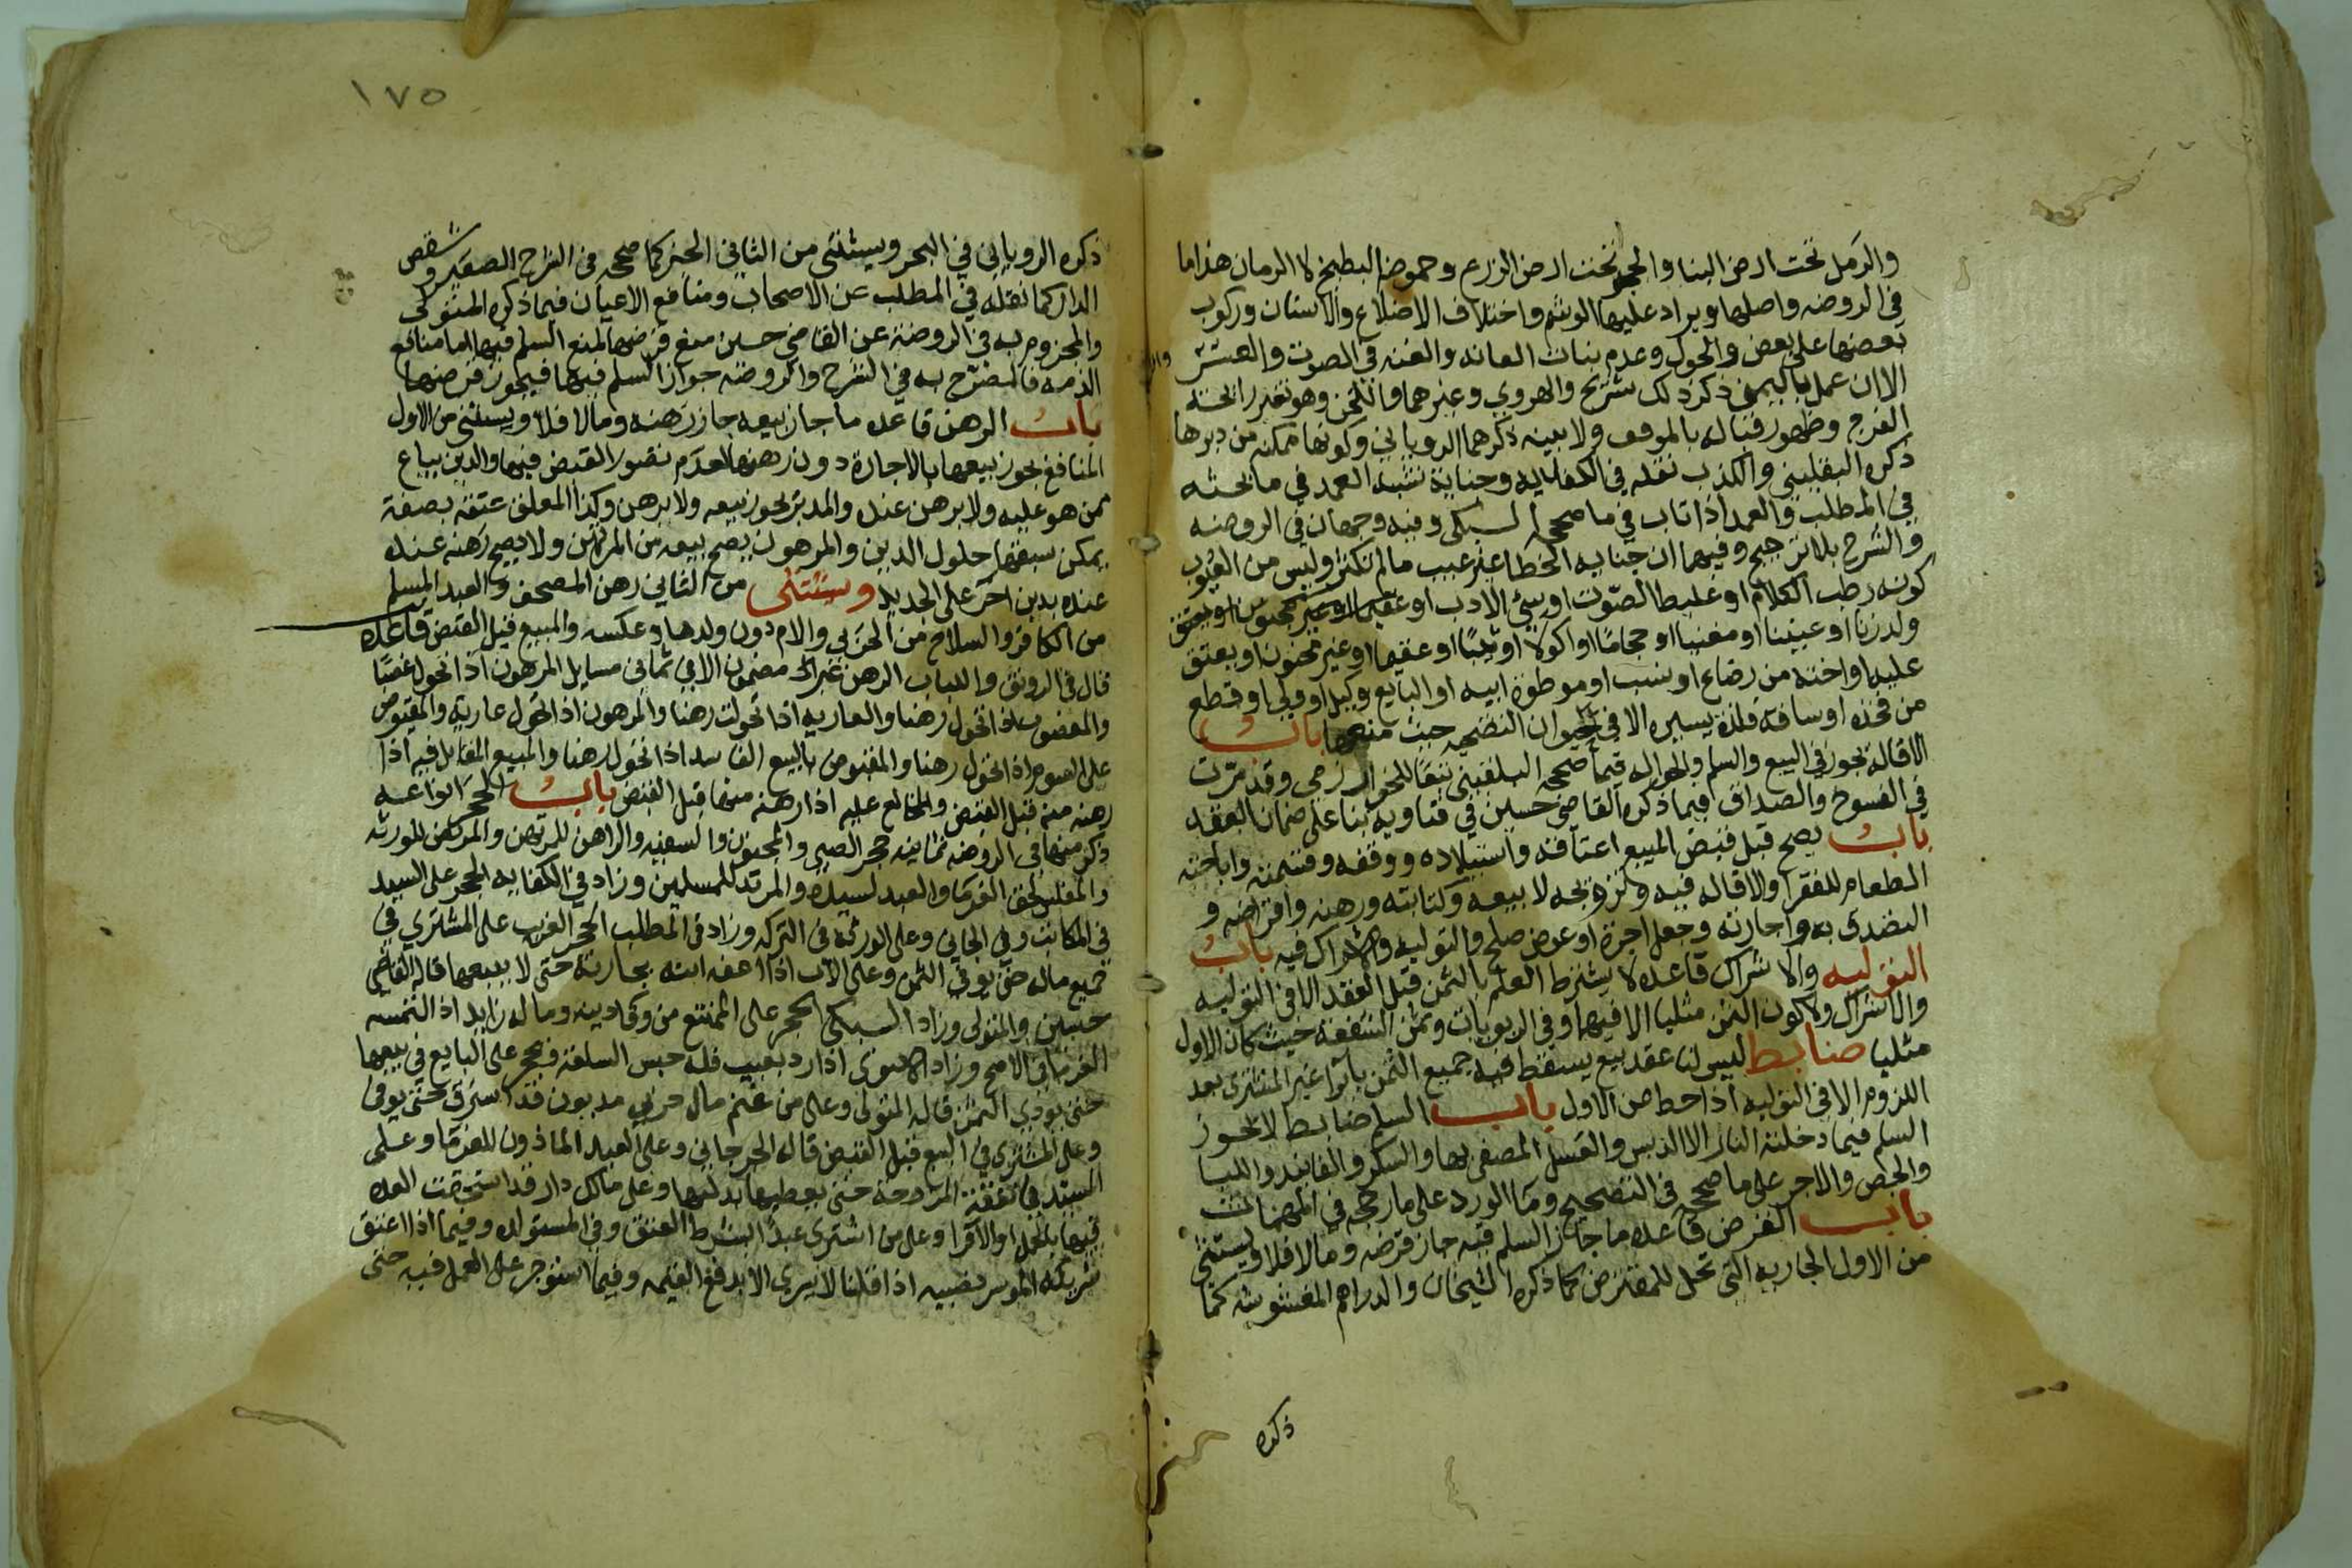 والرمل تحت ارض البنا والحجر تحت ارض الزرع وحموضة البطيخ لا الرمان هذا ما
في الروضه واصلها ويراد عليها الوشم واختلاف الاضلاع والاسنان وركوب
بعضها على بعض والحول وعدم نبات العانه والغنه في الصوت والعسر
الا ان عمل باليمنى ذكر ذلك شريح والهروي وغيرهما والخن وهو تغير رائحة
الفرج وظهور قباله بالموقف ولا بينه ذكرهما الروياني وكونها ممكنه من دبرها
ذكره البلقيني والكذب نقله في الكفاية وجناية شبه العمد في ما بحثه
في المطلب والعمد اذا تاب في ما صححه السبكي وفيه وجهان في الروضه
والشرح بلا ترجيح وفيهما ان جنايه الخطا غير عيب ما لم تكثر وليس من العيوب
كونه رطب الكلام او غليظ الصوت او سيئ الادب او
ولد زنا او عنينا او مغنيا او حجاما او اكولا او ثيبا او عقيما او غير مختون او يعتق
عليه او اخته من رضاع او نسب او موطوة ابيه او البايع وكيل او ولي او قطع
من فخذه او ساقه فلذة يسيره الا في حيوان التضحيه حيث منعها باب
الاقاله تجوز في البيع والسلم والحواله فيما صححه البلقيني تبعا للخوارزمي وقد مرت
في الفسوخ والصداق فيما ذكره القاضي حسين في فتاويه بنا على ضمان العقد
باب يصح قبل قبض المبيع اعتاقه واستيلاده ووقفه وقسمته واباحته
الطعام للفقرا والاقاله فيه وتزويجه لا بيعه وكتابته ورهنه واقراضه و
التصدق به واجارته وجعل اجرة او عوض صلح والتوليه والاشراك فيه باب
التوليه والاشراك قاعده لا يشترط العلم بالثمن قبل العقد الا في التوليه
والاشراك ولا كون الثمن مثليا الا فيهما وفي الربويات وثمن الشفعة حيث كان الاول
مثليا ضابط ليس لنا عقد بيع يسقط فيه جميع الثمن بابراء غير المشتري بعد
اللزوم الا في التوليه اذا حط من الاول باب السلم ضابط لا يجوز
السلم فيما دخلته النار الا الدبس والعسل المصفى بها والسكر والفانيد واللبا
والجص والاجر على ما صححه في التصحيح وما الورد على ما رجحه في المهمات
باب القرض قاعده ما جاز السلم فيه جاز قرضه وما لا فلا ويستثنى
من الاول الجاريه التي تحل للمقترض كما ذكره الشيخان والدراهم المغشوشه كما
ذكره
١٧٥
ذكره الروياني في البحر ويستثنى من الثاني الخبز كما صححه في الشرح الصغير وشقص
الدار كما نقله في المطلب عن الاصحاب ومنافع الاعيان فيما ذكره المتولى
والمجزوم به في الروضة عن القاضي حسين منع قرضها لمنع السلم فيها اما منافع
الذمه فالمصرح به في الشرح والروضه جواز السلم فيها فيجوز قرضها
باب الرهن قاعده ما جاز بيعه جاز رهنه وما لا فلا ويستثنى من الاول
المنافع يجوز بيعها بالاجارة دون رهنها لعدم تصور القبض فيها والدين يباع
ممن هو عليه ولا يرهن عنده والمدبر يجوز بيعه ولا يرهن وكذا المعلق عتقه بصفة
يمكن سبقها حلول الدين والمرهون يصح بيعه من المرتهن ولا يصح رهنه عنده
عنده بدين اخر على الجديد ويستثنى من الثاني رهن المصحف والعبد المسلم
من الكافر والسلاح من الحربي والام دون ولدها وعكسه والمبيع قبل القبض قاعده
قال في الرونق واللباب الرهن غير مضمون الا في ثماني مسايل المرهون اذا تحول غصبا
والمغصوب اذا تحول رهنا والعاريه اذا تحولت رهنا والمرهون اذا تحول عارية والمقبوض
على السوم اذا تحول رهنا والمقبوض بالبيع الفاسد اذا تحول رهنا والمبيع المقايل فيه اذا
رهنه منه قبل القبض والمخالع عليه اذا رهنه منها قبل القبض باب الحجر انواعه
ذكر منها في الروضه ثمانيه حجر الصبي والمجنون والسفيه والراهن للمرتهن والمريض للورثه
والمفلس لحق الغرما والعبد لسيده والمرتد للمسلمين وزاد في الكفايه الحجر على السيد
في المكاتب وفي الجاني وعلى الورثة في التركه وزاد في المطلب الحجر الغريب على المشتري في
جميع ماله حتى يوفي الثمن وعلى الاب اذا اعفه ابنه بجارية حتى لا يبيعها قاله القاضي
حسين والمتولى وزاد السبكي الحجر على الممتنع من وفا دينه وماله زايد اذا التمسه
الغرما في الاصح وزاد الاسنوي اذا رد بعيب فله حبس السلعة ويحجر على البايع في بيعها
حتى يودي الثمن قاله المتولى وعلى من غنم مال حربي مديون قد استرق حتى يوفى
وعلى المشتري في المبيع قبل القبض قاله الجرجاني وعلى العبد الماذون للغرما وعلى
السيد في نفقة المزوجة حتى يعطيها بدلها وعلى مالك دار قد استحقت العده
فيها بالحمل او الاقرا وعلى من اشترى عبدا بشرط العتق وفي المستولده وفيما اذا اعتق
شريكه الموسر نصيبه اذا قلنا لا يسري الا بدفع القيمه وفيما استوجر على العمل فيه حتى